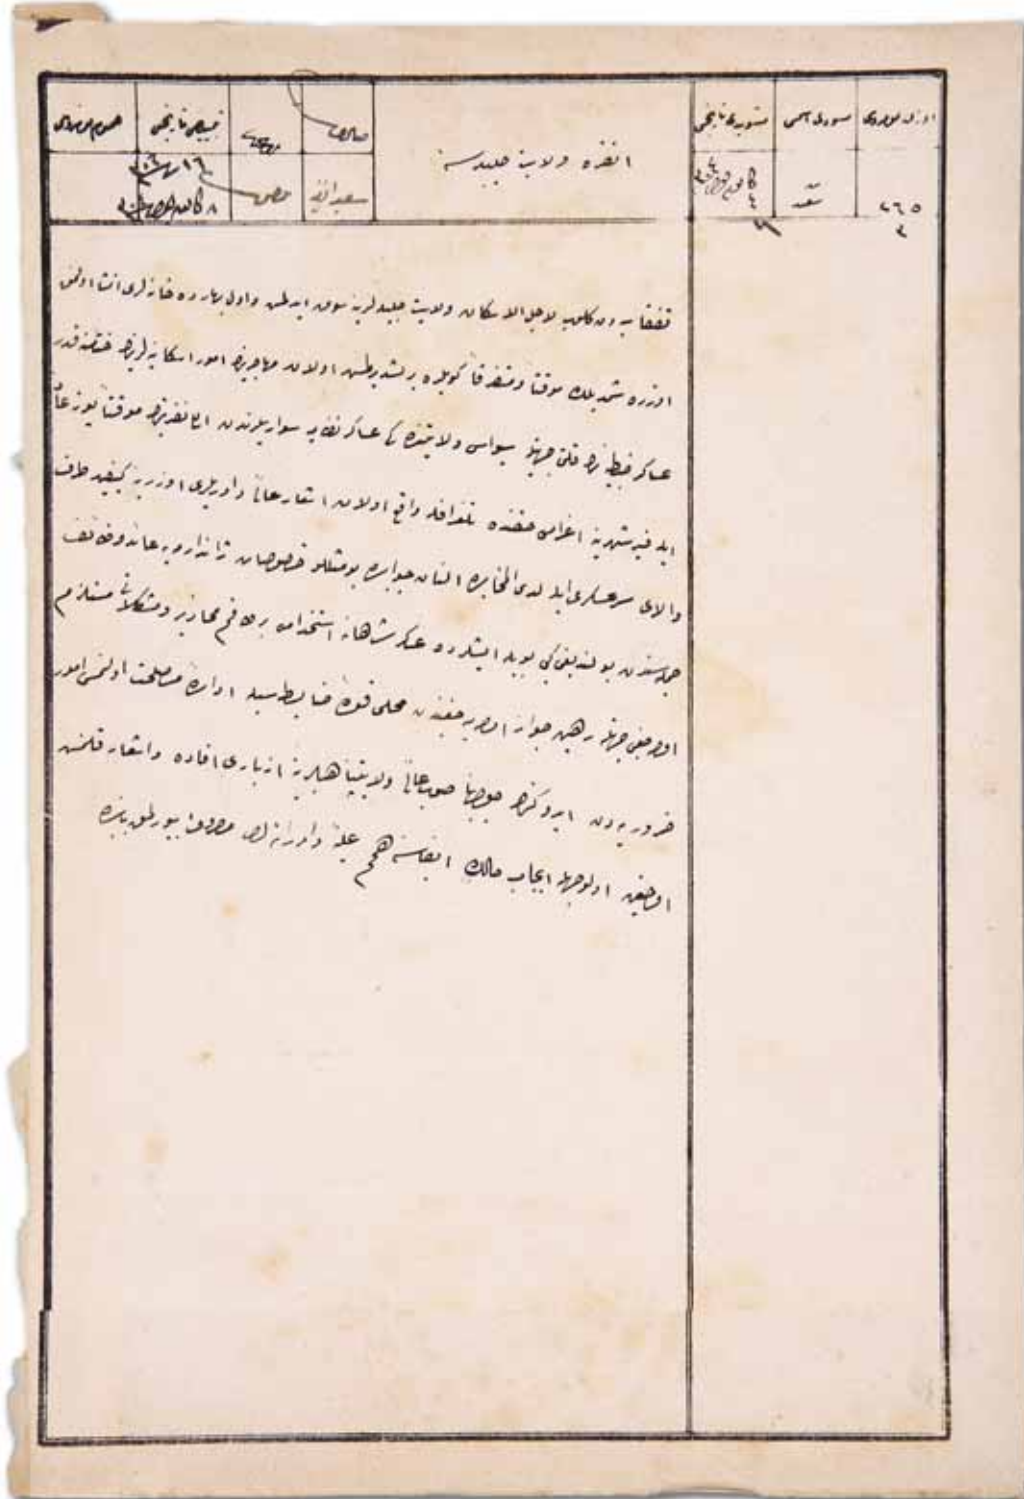 مسودك اسمى
تسويدى تاريخى
انقره ولايت جليله سنه
تبييض تاريخى
٢٦٥
سعد
قفقاسيه دن كلوب لاجل الاسكان ولايت جليله لرينه سوق ايدلمش واول بهارده خانه لرى انشا اولنمق
اوزره شمديلك موقتاً ومتفرقاً كويلره يرلشديرلمش اولان مهاجرينك امور اسكانيه لرينك ختامنه قدر
عساكر ضبطيه نك قلتى جهتيله سيواس ولايتنده كى عساكر نظاميه سواريلرندن نفرينك موقتاً يوزغاد
ايله قيرشهرينه اعزامى حقنده تلغرافله واقع اولان اشعار عالى داوريلرى اوزرينه كيفيت طرف
والاى سرعسكرى ايله لدى المخابره النان جوابده بومثللو خصوصات ژاندارمه يه عائد وظائف
جمله سندن بولنديغى كبى بويله ايشلرده عسكر شاهانه استخدامى بر قسم محاذير ومشكلاتى مستلزم
اوله جغى جهتله رهين جواز اوله ميه جغندن محلى قوه ضابطه سيله اداره مصلحت اولنمسى امور
ضروريه دن ايدوكنك جواباً صوب عالى ولايتپناهيلرينه ازبارى افاده واشعار قلنمش
اولمغله اولوجهله ايجاب حالك ايفاسنه همم عليه داورانه لرى مصروف بيورلمق بابنده